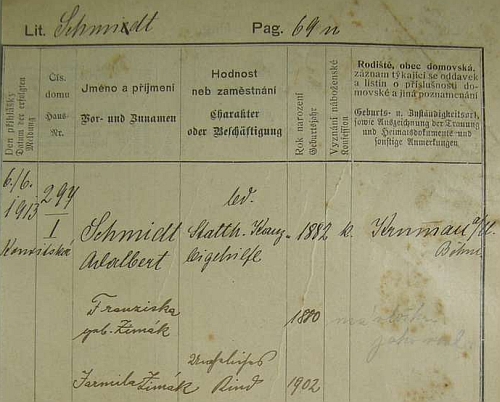 Lit. Schmidt Pag. 69 n
Den přihlášky
Datum der erfolgten
Meldung
Čís.
domu
Haus-
Nr.
Jméno a příjmení
Vor- und Zunamen
Hodnost
neb zaměstnání
Charakter
oder Beschäftigung
Rok narození
Geburtsjahr
Vyznání náboženské
Konfession
Rodiště, obec domovská,
záznam týkající se oddavek
a listin o příslušnosti do-
movské a jiná poznamenání
Geburts- u. Zuständigkeitsort,
sowie Aufzeichnung der Trauung
und Heimatsdokumente und
sonstige Anmerkungen
6./6. 294 led.
1913 I Schmidt Statth. Kanz- 1882 k. Krumau a/M.
Adalbert leigehilfe Böhm.
Franziska 1880
geb. Zimák
Uneheliches
Jarmila Zimák Kind 1902